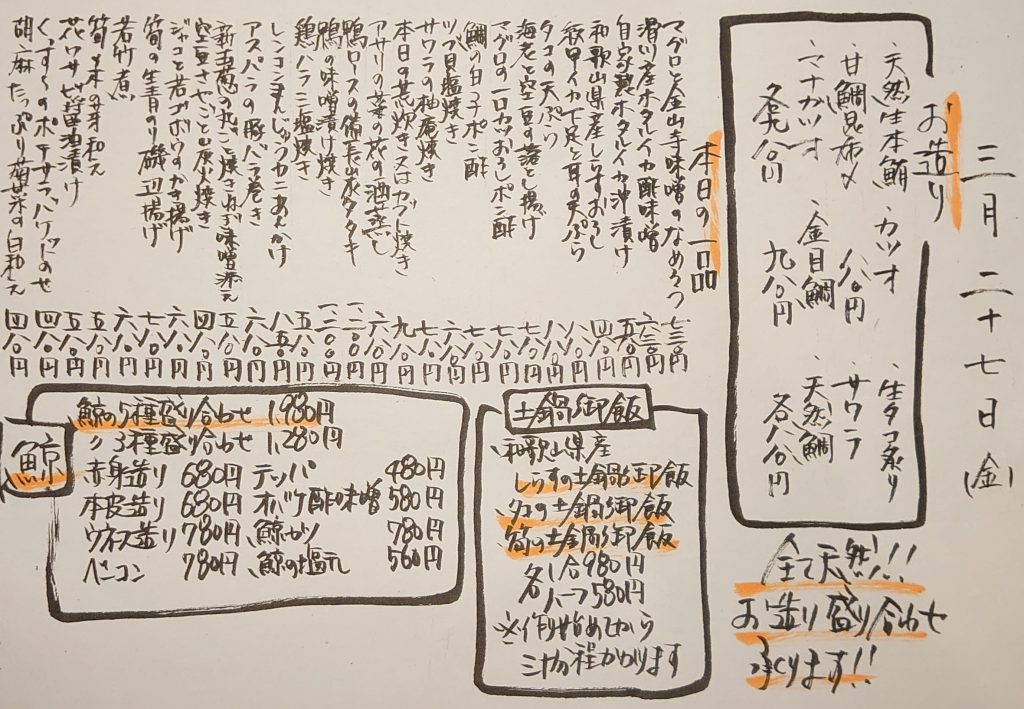 三月二十七日(金)
お造り
・天然生本鮪 ・カツオ ・生タコ炙り
・甘鯛昆布〆 八八〇円 ・サワラ
・マナガツオ ・金目鯛 ・天然鯛
九八〇円 各八八〇円
全て天然!!
お造り盛り合わせ
承ります!!
本日の一品
マグロと金山寺味噌のなめろう 七三〇円
滑川産ホタルイカ酢味噌 六三〇円
自家製ホタルイカ沖漬け 五八〇円
和歌山県産しらすおろし 四八〇円
紋甲イカ下足と耳の天ぷら 六八〇円
タコの天ぷら 八八〇円
海老と空豆の落とし揚げ 八八〇円
マグロの一口カツおろしポン酢 七八〇円
鯛の白子ポン酢 七八〇円
ツブ貝塩焼き 六八〇円
サワラの柚庵焼き 七八〇円
本日の荒炊き又はカブト焼き 九八〇円
アサリと菜の花の酒蒸し 六八〇円
鴨ロースの備長炭タタキ 一二八〇円
鴨の味噌漬け焼き 一二八〇円
鶏ハラミ塩焼き 五八〇円
レンコンまんじゅうカニあんかけ 八五〇円
アスパラの豚バラ巻き 六八〇円
新玉葱の丸ごと焼きねぎ味噌添え 五八〇円
空豆さやごと炭火焼き 四八〇円
ジャコと若ゴボウのかき揚げ 六八〇円
筍の生青のり磯辺揚げ 七八〇円
若竹煮 六八〇円
筍木の芽和え 五八〇円
花ワサビ醤油漬け 五八〇円
くんすもののポテサラバケットのせ 四八〇円
胡麻たっぷり菊菜の白和え 四八〇円
土鍋御飯
和歌山県産
しらすの土鍋御飯
タコの土鍋御飯
筍の土鍋御飯
各1合980円
ハーフ580円
※作り始めてから
三十分程かかります
鯨
鯨の5種盛り合わせ 1,980円
〃3種盛り合わせ 1,280円
赤身造り 680円 テッパ 480円
本皮造り 680円 オバケ酢味噌 580円
ウネス造り 780円 鯨カツ 780円
ベーコン 780円 鯨の塩タレ 560円